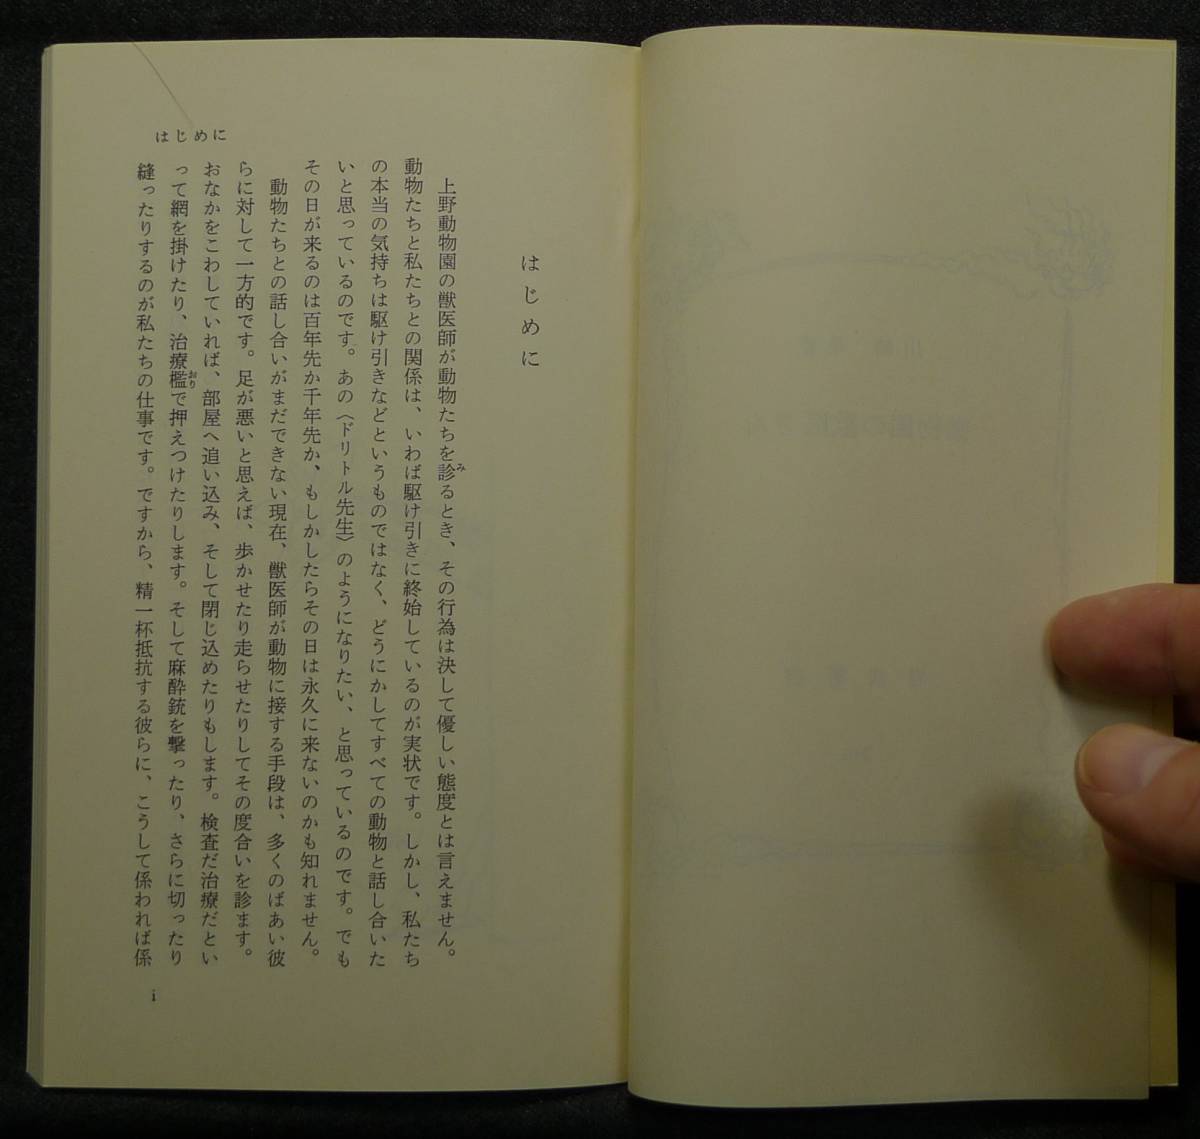 はじめに
上野動物園の獣医師が動物たちを診るとき、その行為は決して優しい態度とは言えません。
動物たちと私たちとの関係は、いわば駆け引きに終始しているのが実状です。しかし、私たち
の本当の気持ちは駆け引きなどというものではなく、どうにかしてすべての動物と話し合いた
いと思っているのです。あの〈ドリトル先生〉のようになりたい、と思っているのです。でも
その日が来るのは百年先か千年先か、もしかしたらその日は永久に来ないのかも知れません。
動物たちとの話し合いがまだできない現在、獣医師が動物に接する手段は、多くのばあい彼
らに対して一方的です。足が悪いと思えば、歩かせたり走らせたりしてその度合いを診ます。
おなかをこわしていれば、部屋へ追い込み、そして閉じ込めたりもします。検査だ治療だとい
って網を掛けたり、治療檻で押えつけたりします。そして麻酔銃を撃ったり、さらに切ったり
縫ったりするのが私たちの仕事です。ですから、精一杯抵抗する彼らに、こうして係われば係
はじめに
i
み
おり